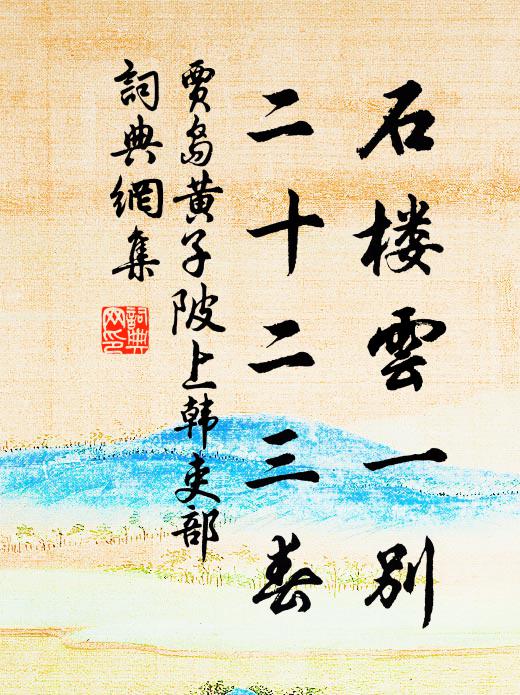 石楼雲一别
二十二三春
賈島黄子陂上韩吏部
詞典網集
詞典
网印